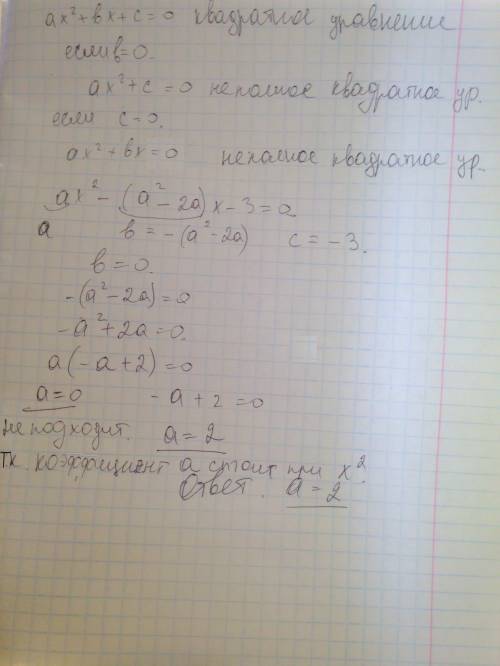 ax² + bx + c = 0 квадратное уравнение
если b = 0.
ax² + c = 0 неполное квадратное ур.
если c = 0.
ax² + bx = 0 неполное квадратное ур.
ax² - (a² - 2a)x - 3 = 0
a b = -(a² - 2a) c = -3.
b = 0.
-(a² - 2a) = 0
-a² + 2a = 0.
a(-a + 2) = 0
a = 0 -a + 2 = 0
не подходит. a = 2
т.к. коэффициент a стоит при x².
Ответ. a = 2